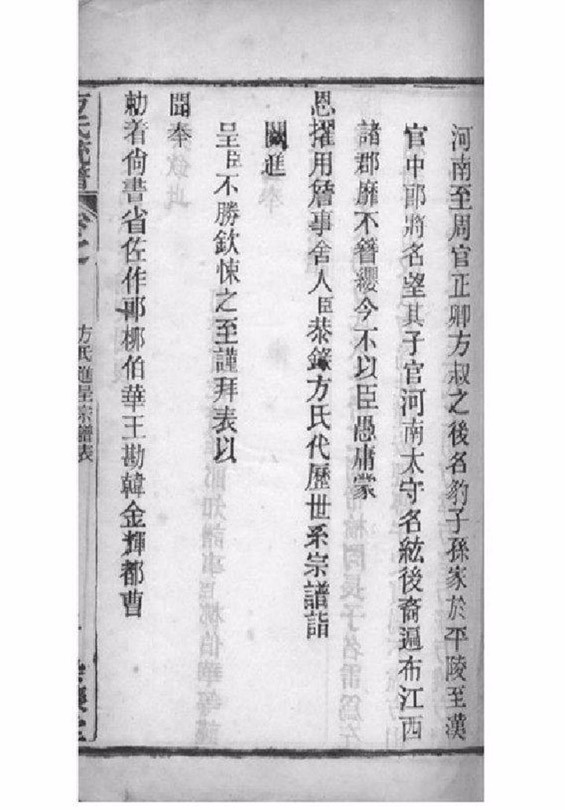 河南至周官正卿方叔之後名豹子孫家於平陵至漢
官中郎將名望其子官河南太守名紘後裔遍布江西
諸郡靡不簪纓今不以臣愚庸蒙
恩擢用詹事舍人臣恭錄方氏代歷世系宗譜詣
闕進
呈臣不勝欽悚之至謹拜表以
聞奉
勅着尚書省佐作郎柳伯華王勘韓金輝都曹
方氏進呈宗譜表